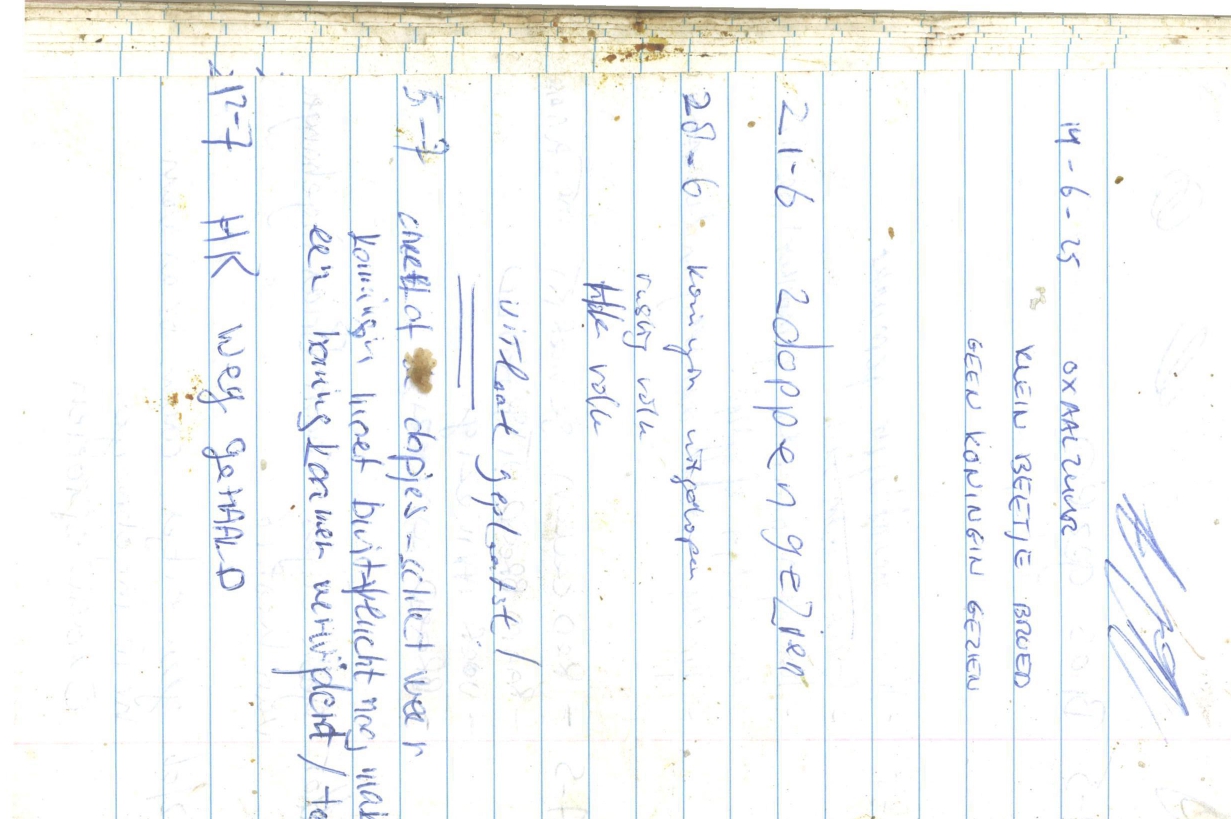 14-6-25 OXAALZUUR
KLEIN BEETJE BROED
GEEN KONINGIN GEZIEN
21-6 2 doppen gezien
28-6 koningin uitgelopen
rustig volk
HK volk
UiTlaat geplaatst /
5-7 dopjes
koningin limet bruitvlucht nog
een honingkamer verwijderd /
12-7 HK weg geHAALD